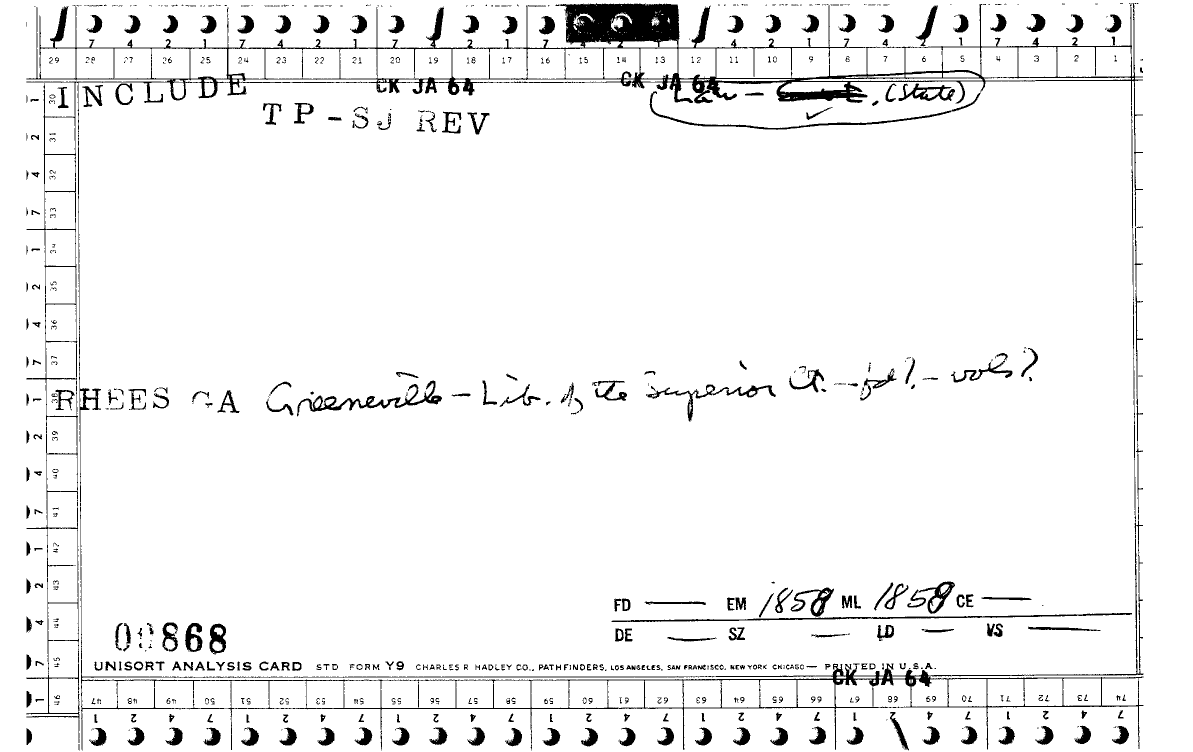 7 4 2 1 7 4 2 1 7 4 2 1 7 4 2 1 7 4 2 1 7 4 2 1 7 4 2 1
29 28 27 26 25 24 23 22 21 20 19 18 17 16 15 14 13 12 11 10 9 8 7 6 5 4 3 2 1
INCLUDE CK JA 64 CK JA 64 Law - , (State)
TP-SJ REV
1 30
2 31
4 32
7 33
1 34
2 35
4 36
7 37
RHEES GA Greeneville - Lib. of the Superior Ct. - fd? - vols?
1 38
2 39
4 40
7 41
1 42
2 43
4 44
7 45
1 46
FD — EM 1858 ML 1858 CE —
DE — SZ — LD — VS —
00868
UNISORT ANALYSIS CARD STD FORM Y9 CHARLES R HADLEY CO., PATHFINDERS, LOS ANGELES, SAN FRANCISCO, NEW YORK CHICAGO — PRINTED IN U.S.A.
CK JA 64
47 48 49 50 51 52 53 54 55 56 57 58 59 60 61 62 63 64 65 66 67 68 69 70 71 72 73 74
1 2 4 7 1 2 4 7 1 2 4 7 1 2 4 7 1 2 4 7 1 2 4 7 1 2 4 7